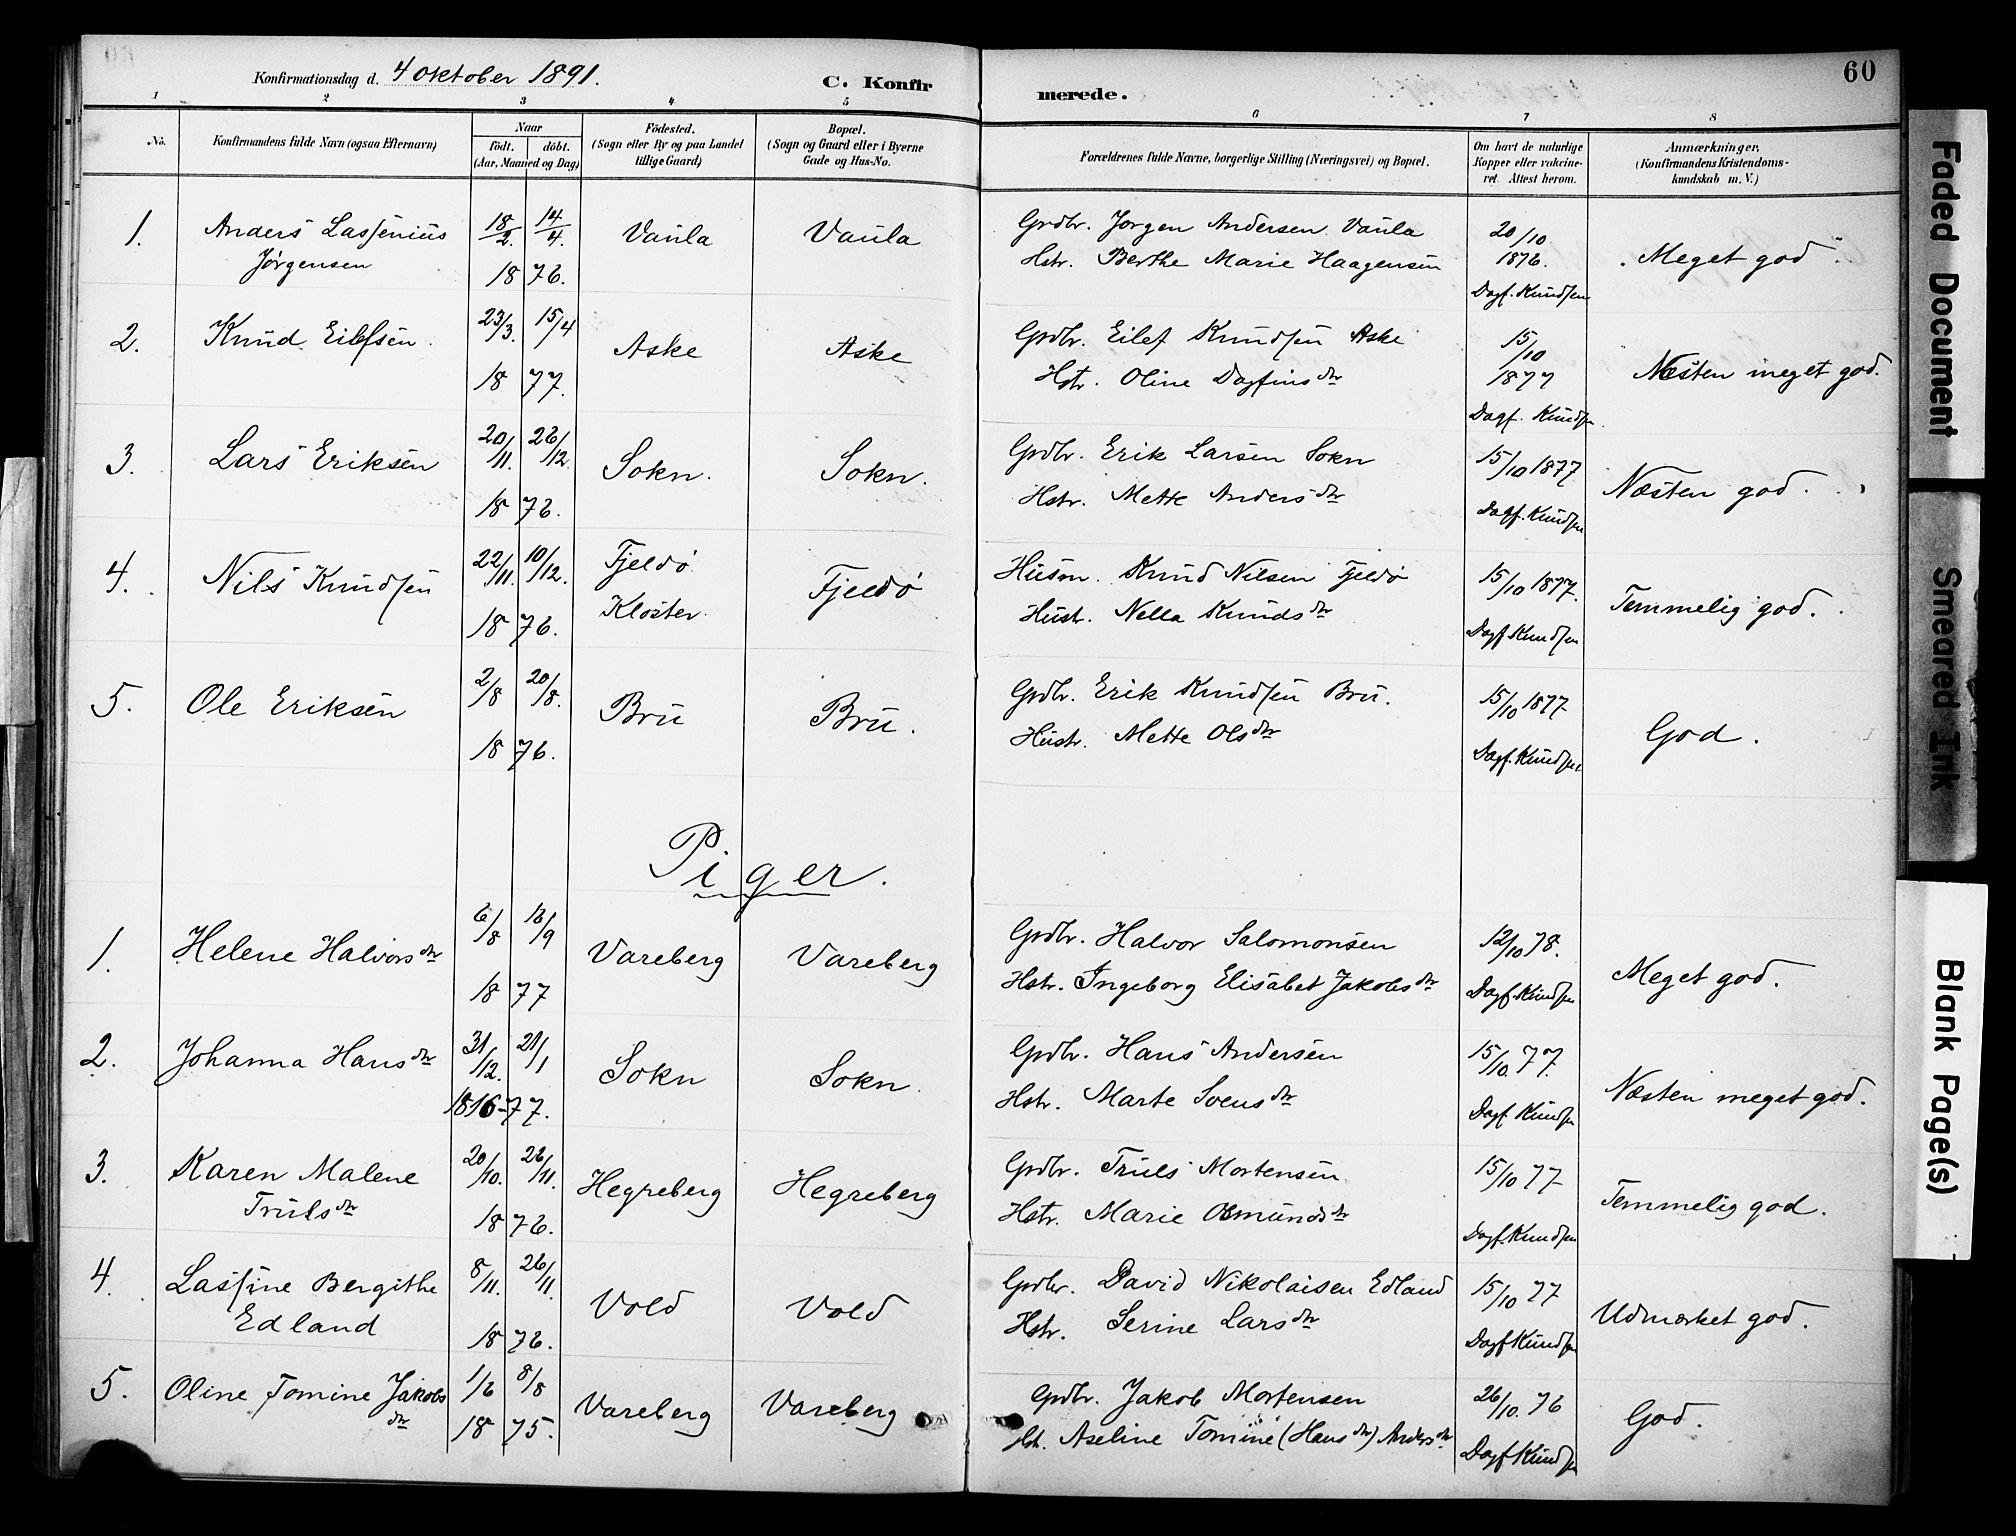 60
Konfirmationsdag d. 4 oktober 1891.
C. Konfirmerede.
1 2 3 4 5 6 7 8
No.
Konfirmandens fulde Navn (ogsaa Efternavn)
Naar
födt. döbt.
(Aar, Maaned og Dag)
Födested.
(Sogn eller By og paa Landet
tillige Gaard)
Bopæl.
(Sogn og Gaard eller i Byerne
Gade og Hus-No.
Forældrenes fulde Navne, borgerlige Stilling (Næringsvei) og Bopæl.
Om havt de naturlige
Kopper eller vakcine-
ret. Attest herom.
Anmærkninger.
(Konfirmandens Kristendoms-
kundskab m. V.)
1. Anders Lassenius Jørgensen 18/2. 14/4. 18 76. Vaula Vaula
Grdbr. Jørgen Andersen Vaula
Hstr. Berthe Marie Haagensen
20/10 1876. Dagf. Knudsen
Meget god.
2. Knud Eilefsen. 23/3. 15/4 18 77. Aske Aske
Grdbr. Eilef Knudsen Aske
Hstr. Oline Dagfinsdtr
15/10 1877 Dagf. Knudsen
Næsten meget god.
3. Lars Eriksen 20/11. 26/12. 18 76. Sokn. Sokn.
Grdbr. Erik Larsen Sokn
Hstr. Mette Andersdtr
15/10 1877 Dagf. Knudsen
Næsten god.
4. Nils Knudsen 22/11. 10/12. 18 76. Fjeldø Kloster. Fjeldø
Husm. Knud Nilsen Fjeldø
Hustr. Nella Knudsdtr
15/10 1877. Dagf Knudsen
Temmelig god.
5. Ole Eriksen 2/8 20/8. 18 76. Bru Bru.
Grdbr. Erik Knudsen Bru.
Hustr. Mette Olsdtr
15/10 1877 Dagf. Knudsen
God.
Piger.
1. Helene Halvorsdtr 6/8 16/9 18 77 Vareberg Vareberg
Grdbr. Halvor Salomonsen
Hstr. Ingeborg Elisabet Jakobsdtr
12/10 78. Dagf Knudsen
Meget god.
2. Johanna Hansdtr 31/12. 21/1 1876-77. Sokn Sokn.
Grdbr. Hans Andersen
Hstr. Marte Svensdtr
15/10. 77. Dagf Knudsen
Næsten meget god.
3. Karen Malene Trulsdtr 20/10. 26/11. 18 76. Hegreberg Hegreberg
Grdbr. Truls Mortensen
Hstr. Marie Osmundsdtr
15/10 77 Dagf. Knudsen
Temmelig god.
4. Lassine Bergithe Edland 8/11. 26/11. 18 76. Vold Vold
Grdbr. David Nikolaisen Edland
Hstr. Serine Larsdtr
15/10 77 Dagf Knudsen
Udmærket god.
5. Oline Tomine Jakobsdtr 1/6 8/8 18 75. Vareberg Vareberg
Grdbr. Jakob Mortensen
Hst. Aseline Tomine (Hansdtr) Andersdtr
26/10. 76 Dagf Knudsen
God.
Faded Document
Smeared Ink
Blank Page(s)